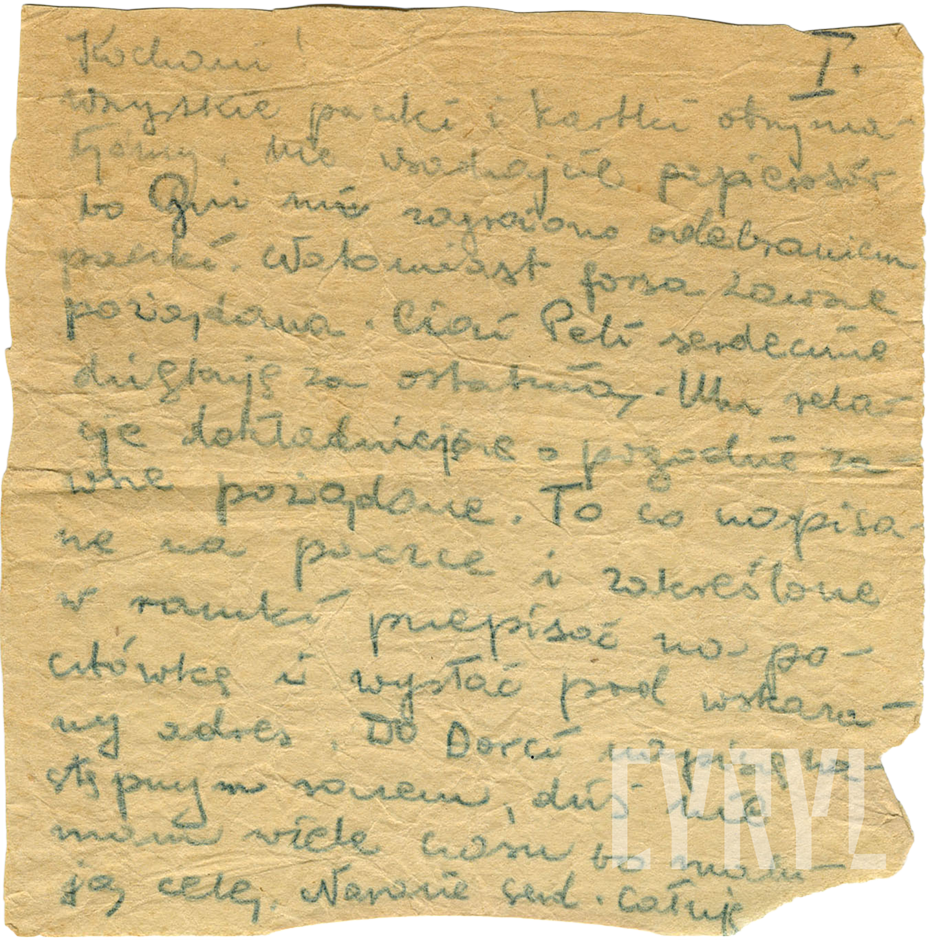 Kochani! I.
wszystkie paczki i kartki otrzyma-
łyśmy. Nie wsadzajcie papierosów
bo nam zagrożono odebraniem
paczki. Natomiast forsa zawsze
pożądana. Cioci Peli serdecznie
dziękuję za ostatnią. relac-
cje dokładniejsze o pogodzie za-
wsze pożądane. To co napisa-
ne na paczce i zakreślone
w ramki przepisać na po-
cztówkę i wysłać pod wskaza-
ny adres. Do Dorci napiszę na-
stępnym razem, dziś nie
mam wiele czasu bo malu-
ją celę. Narazie serd. całuję
CYRYL